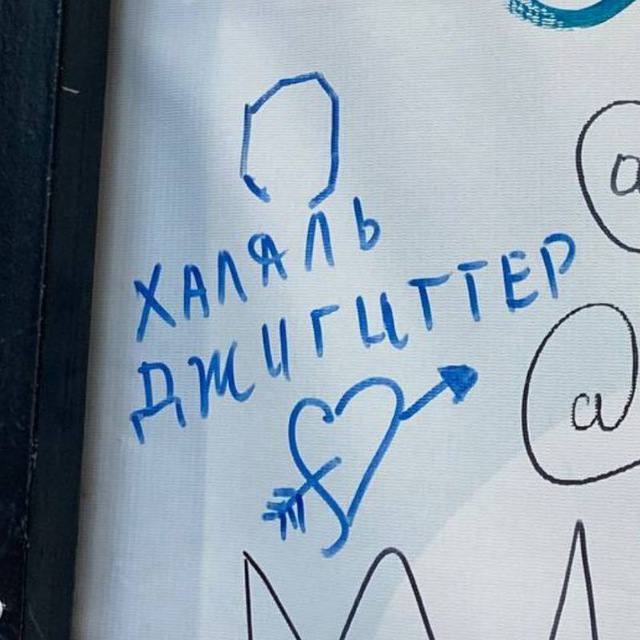 ХАЛЯЛЬ
ДЖИГИТТЕР
a
a